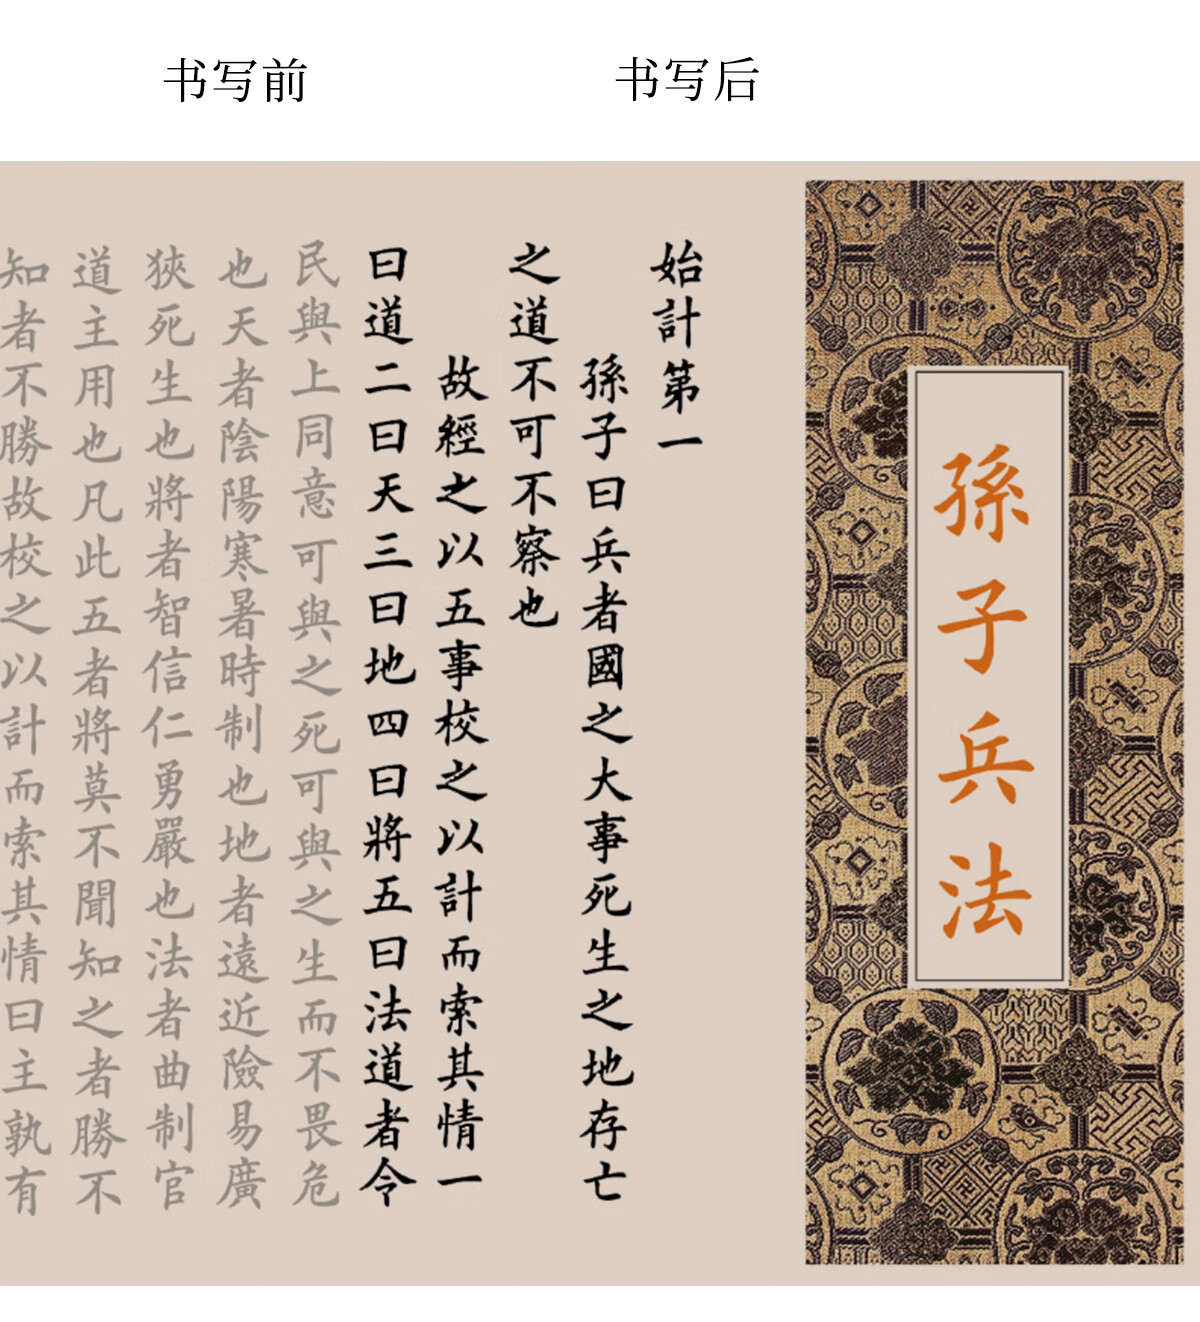 书写前
书写后
孫子兵法
始計第一
孫子曰兵者國之大事死生之地存亡
之道不可不察也
故經之以五事校之以計而索其情一
曰道二曰天三曰地四曰將五曰法道者令
民與上同意可與之死可與之生而不畏危
也天者陰陽寒暑時制也地者遠近險易廣
狹死生也將者智信仁勇嚴也法者曲制官
道主用也凡此五者將莫不聞知之者勝不
知者不勝故校之以計而索其情曰主孰有